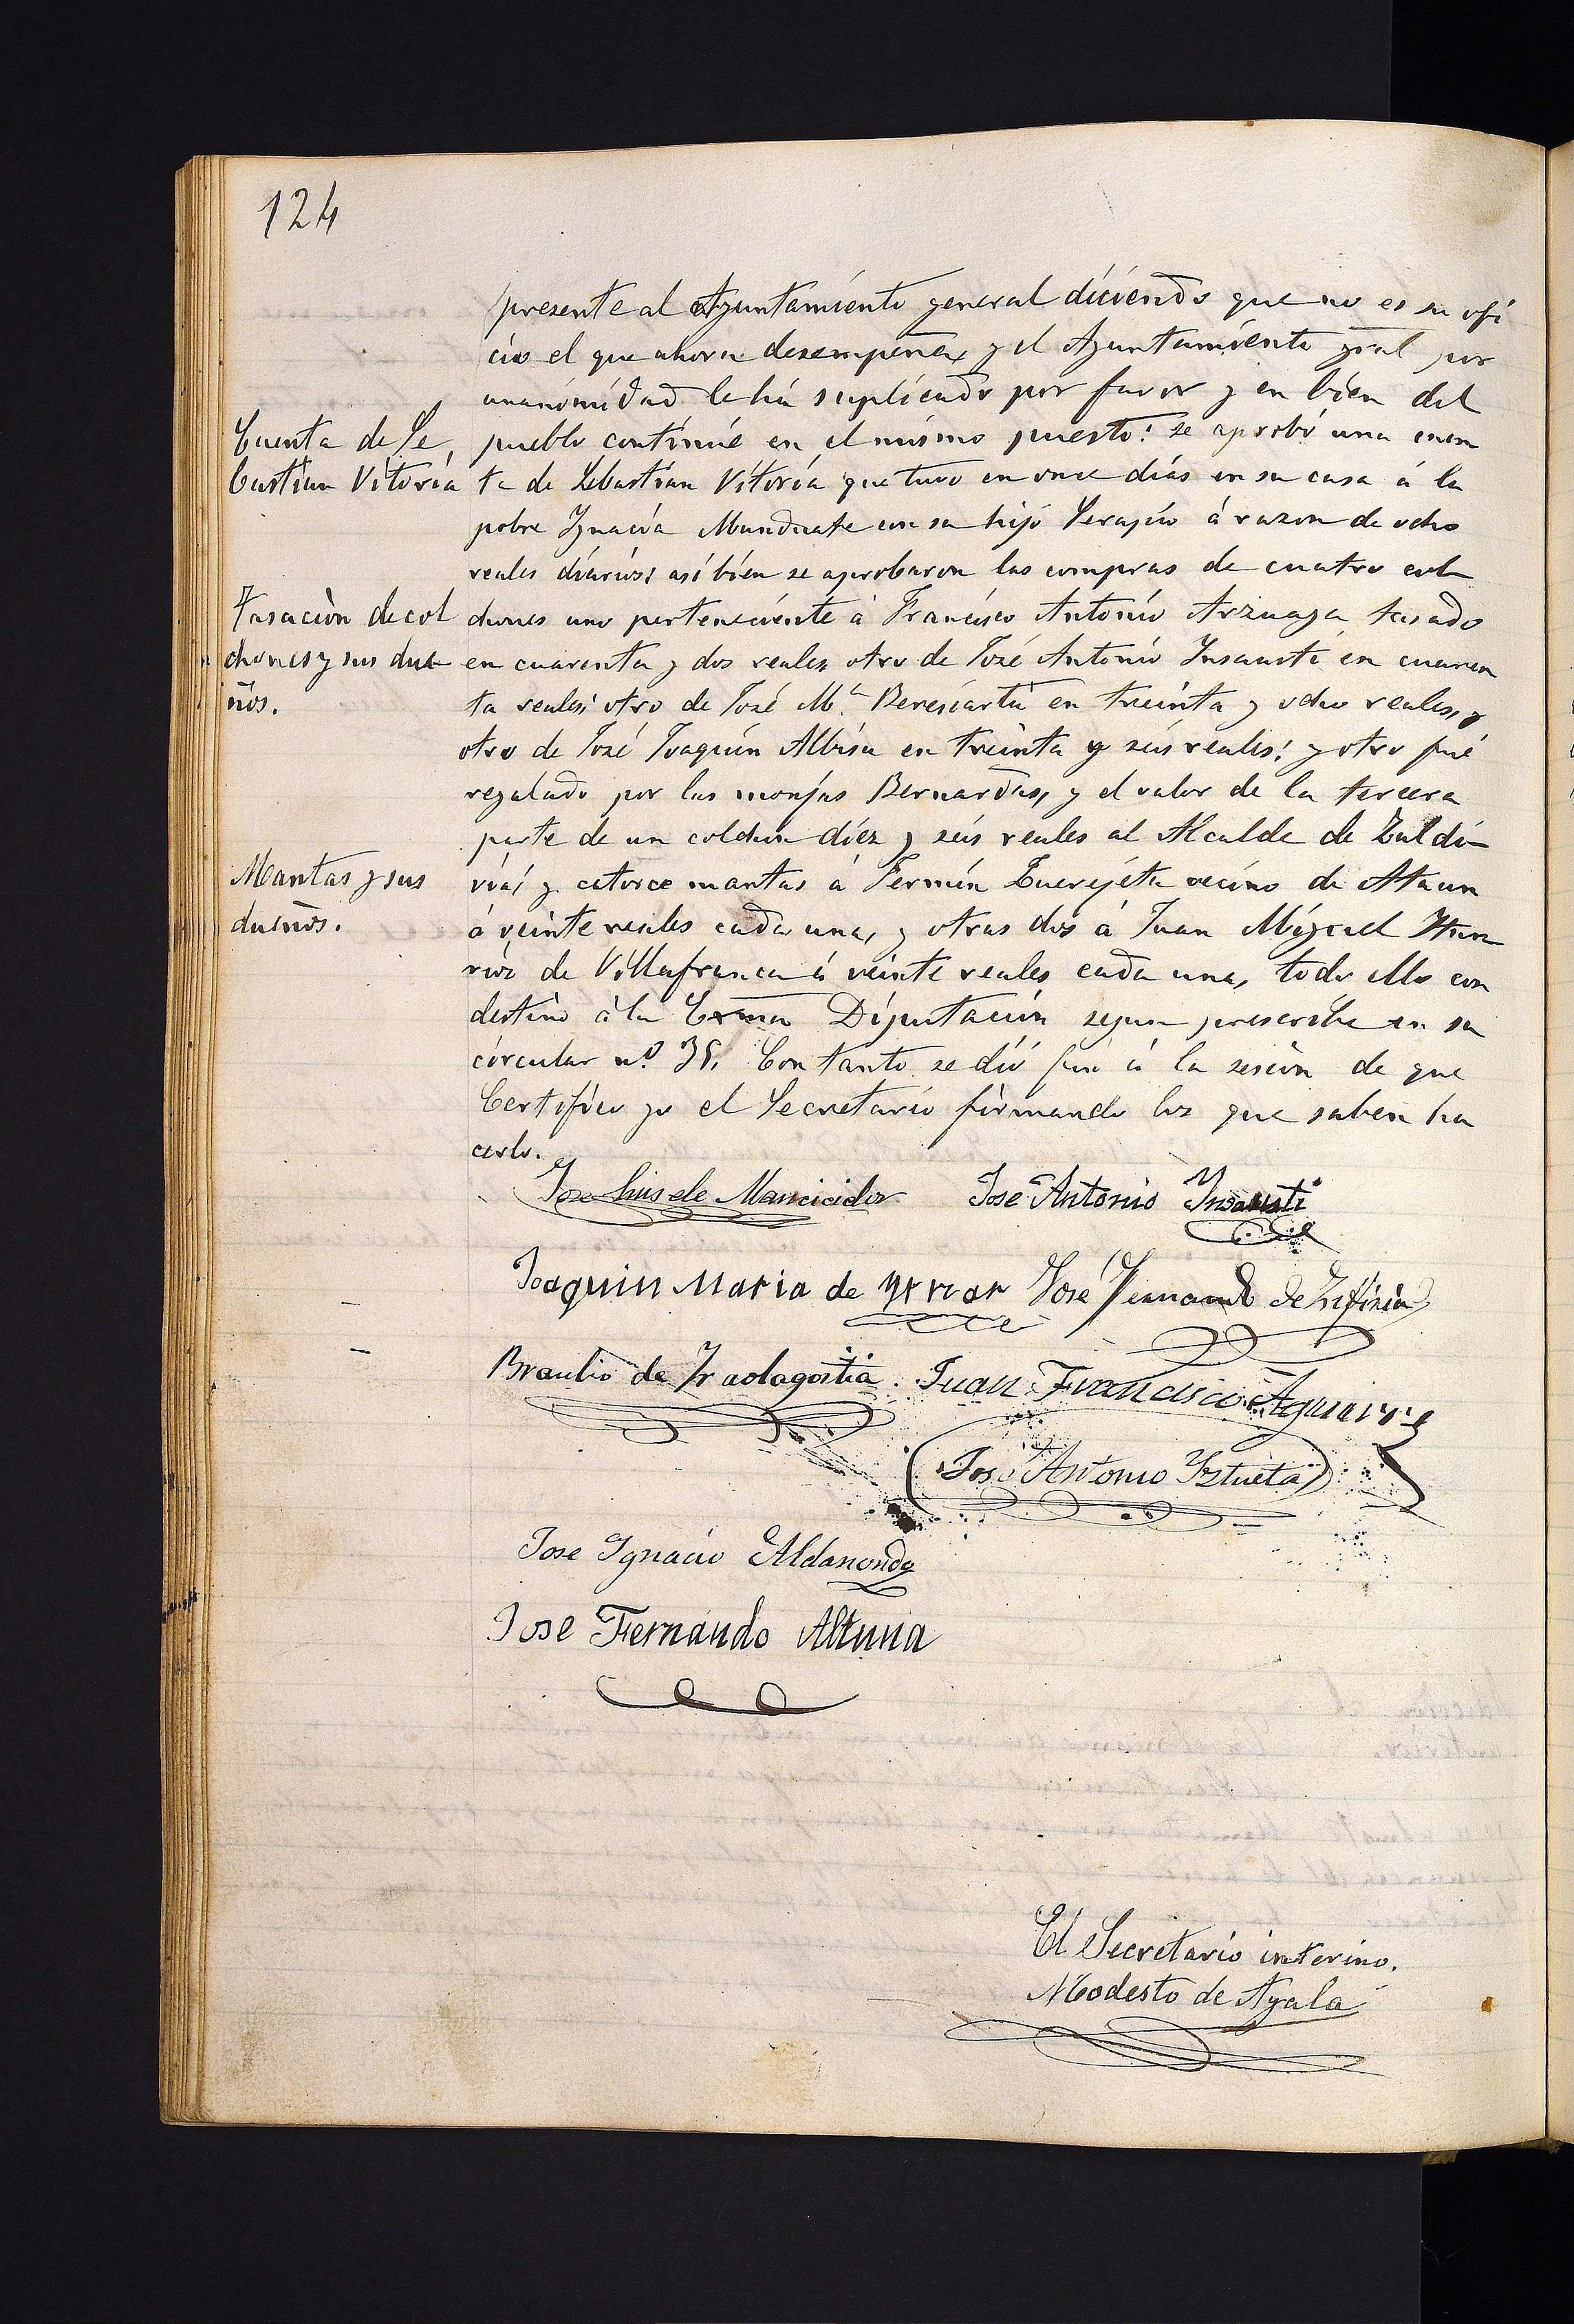 124
presente al Ayuntamiento general diciendo que no es su ofi
cio el que ahora desempeña, y el Ayuntamiento gral por
unanimidad le há suplicado por favor y en bien del
Cuenta de Se
pueblo continúe en el mismo puesto: se aprobó una cuen
bastian Vitoria
ta de Sebastian Vitoria que tuvo en once dias en su casa á la
pobre Ignacia Munduate con su hijo Serapio á razon de ocho
reales diarios: así bien se aprobaron las compras de cuatro col
Tasaciòn de col
chones uno perteneciente á Francisco Antonio Arzuaga tasado
chones y sus due
en cuarenta y dos reales otro de José Antonio Insausti en cuaren
ños.
ta reales: otro de José Mª Beresiartu en treinta y ocho reales, y
otro de José Joaquin Albisu en treinta y seis reales: y otro fué
regalado por las monjas Bernardas, y el valor de la tercera
parte de un colchon diez y seis reales al Alcalde de Zaldi-
Mantas y sus
via; y catorce mantas á Fermin vecino de Ataun
dueños.
á veinte reales cada una, y otras dos á Juan Miguel
de Villafranca á veinte reales cada una, todo ello con
destino à la Exma Diputación segun prescribe en su
circular nº. Con tanto se dió fin á la sesion de que
Certifico yo el Secretario firmando los que saben ha
cerlo.
Jose Luis de Mancicidor Jose Antonio Insausti
Joaquin Maria de José Fernando de
Braulio de Iraolagoitia. Juan Francisco Aguirre
José Antonio Iztueta
Jose Ignacio Aldanondo
Jose Fernando Altuna
El Secretario interino.
Modesto de Ayala